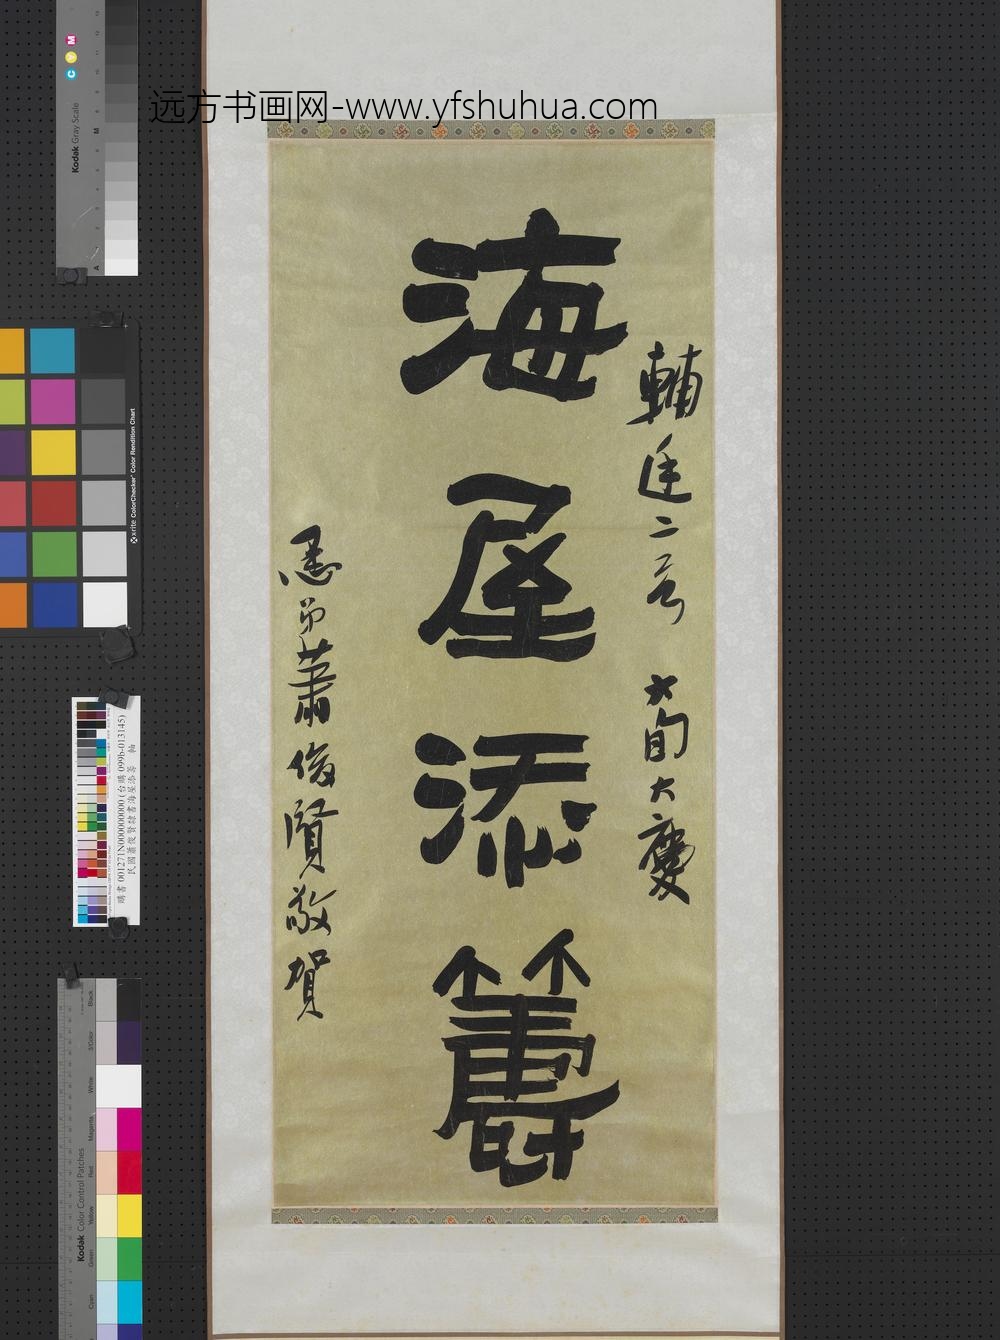 远方书画网-www.yfshuhua.com
海屋添籌
輔廷二哥 六旬大慶
愚弟蕭俊賢敬賀
Kodak Gray Scale
C Y M
A
M
xrite ColorChecker Color Rendition Chart
購書 001271N000000000 (台購 099b-013145)
民國蕭俊賢隸書海屋添籌 軸
Kodak Color Control Patches
Black
3/Color
White
Magenta
Red
Yellow
Green
Cyan